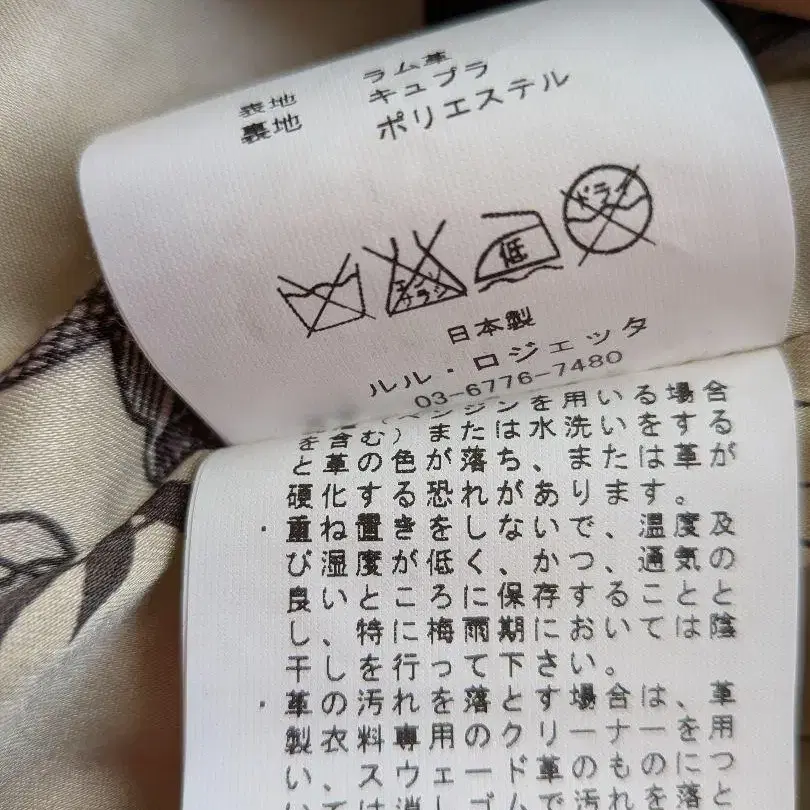 ラム革
表地 キュプラ
裏地 ポリエステル
ドライ
低
エンソ
サラシ
日本製
ルル・ロジェッタ
03-6776-7480
ンジンを用いる場合
を含む)または水洗いをする
と革の色が落ち、または革が
硬化する恐れがあります。
・重ね置きをしないで、温度及
び湿度が低く、かつ、通気の
良いところに保存することと
し、特に梅雨期においては陰
干しを行って下さい。
・革の汚れを落とす場合は、革
製衣料専用のクリーナーを用
い、スウェード革のものにつ
いては消しゴムで汚れを落と